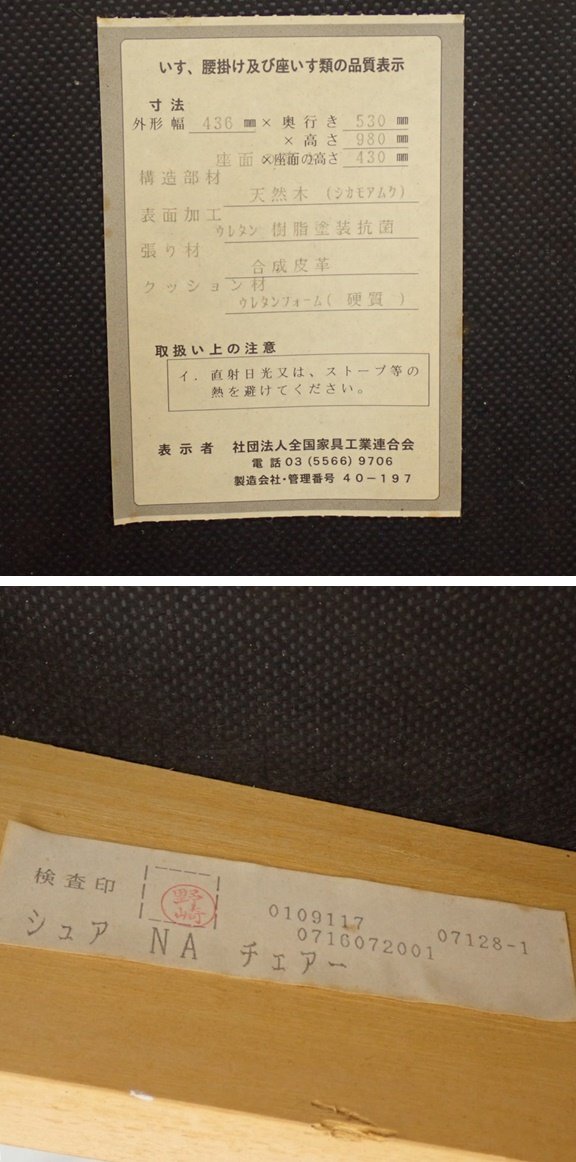 いす、腰掛け及び座いす類の品質表示
寸法
外形幅 436 ㎜ × 奥行き 530 ㎜
× 高さ 980 ㎜
座面 ×座面の高さ 430 ㎜
構造部材
天然木 (シカモアムク)
表面加工
ウレタン 樹脂塗装抗菌
張り材
合成皮革
クッション材
ウレタンフォーム( 硬質 )
取扱い上の注意
イ. 直射日光又は、ストーブ等の
熱を避けてください。
表示者 社団法人全国家具工業連合会
電話 03 (5566) 9706
製造会社・管理番号 40-197
検査印 野崎 0109117 07128-1
0716072001
シュア NA チェアー